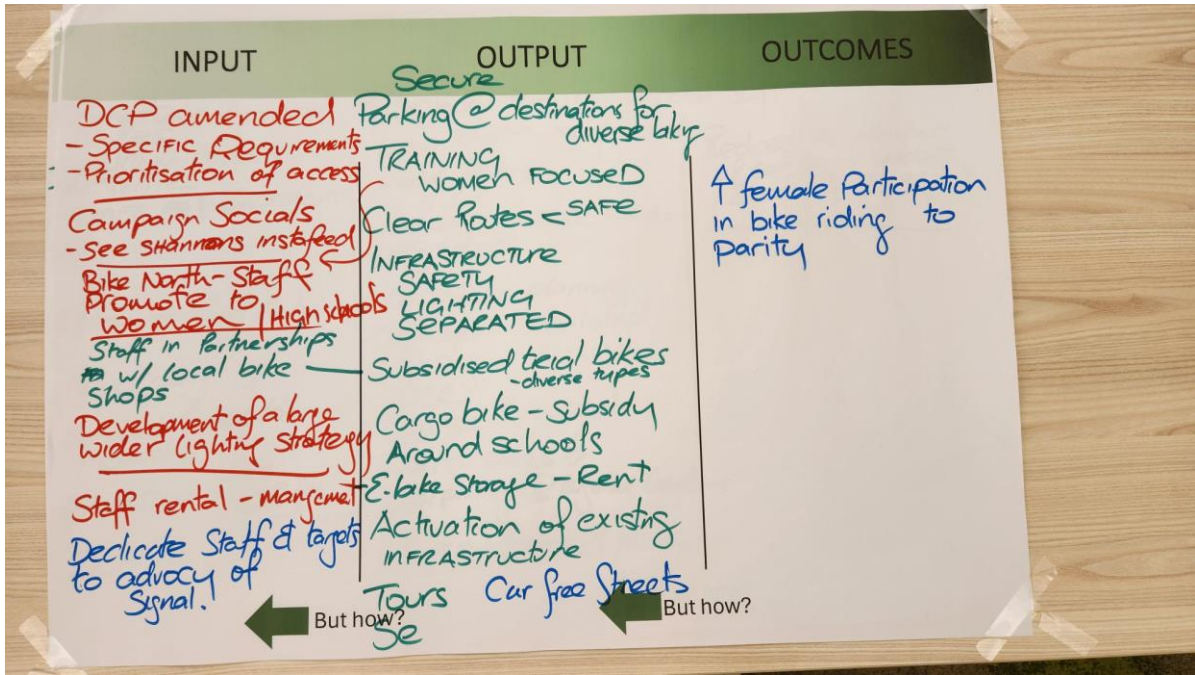 INPUT
DCP amended
- Specific Requrements
- Prioritisation of access
Campaign Socials
- See SHANNONS instafeed
Bike North - Staff
Promote to
women / High schools
Staff in Partnerships
w/ local bike
Shops
Development of a large
wider lighting strategy
Staff rental - mangemet
Dedicate Staff & targets
to advocy of
Signal!
But how?
OUTPUT
Secure
Parking @ destinations for
diverse
TRAINING
WOMEN FOCUSED
Clear Routes < SAFE
INFRASTRUCTURE
SAFETY
LIGHTING
SEPARATED
Subsidised trial bikes
- diverse types
Cargo bike - subsidy
Around schools
E-bike Storage - Rent
Activation of existing
INFRASTRUCTURE
Tours Car free Streets
Se
But how?
OUTCOMES
↑ female Participation
in bike riding to
Parity